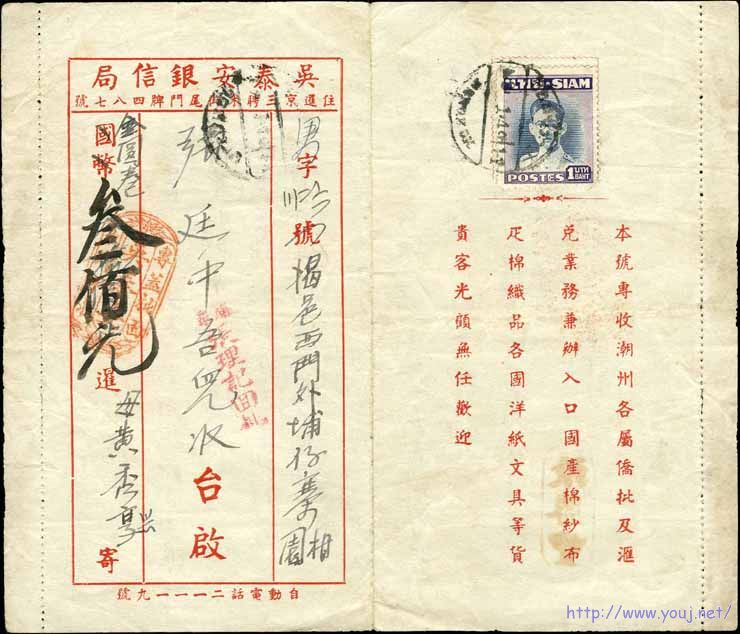 吳泰安銀信局
住暹京三聘尾門牌四八七號
男字號
揭邑西門外埔仔寨園相
張廷中吾兒收台啟
金圓卷
國幣叁佰元暹
母黃香寄
自動電話二一一一九號
SIAM
POSTES 1 บาท BAHT
本號專收潮州各屬僑批及滙
兌業務兼辦入口國產棉紗布
疋棉織品各國洋紙文具等貨
貴客光顧無任歡迎
http://www.youj.net/